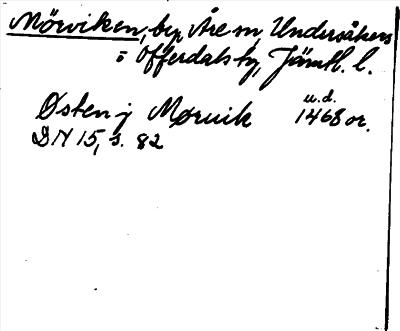 Mörviken, by, Åre sn, Undersåkers
o Offerdals tg, Jämtl. l.
Østen j Møruik u.d. 1468 or.
DN 15, s. 82